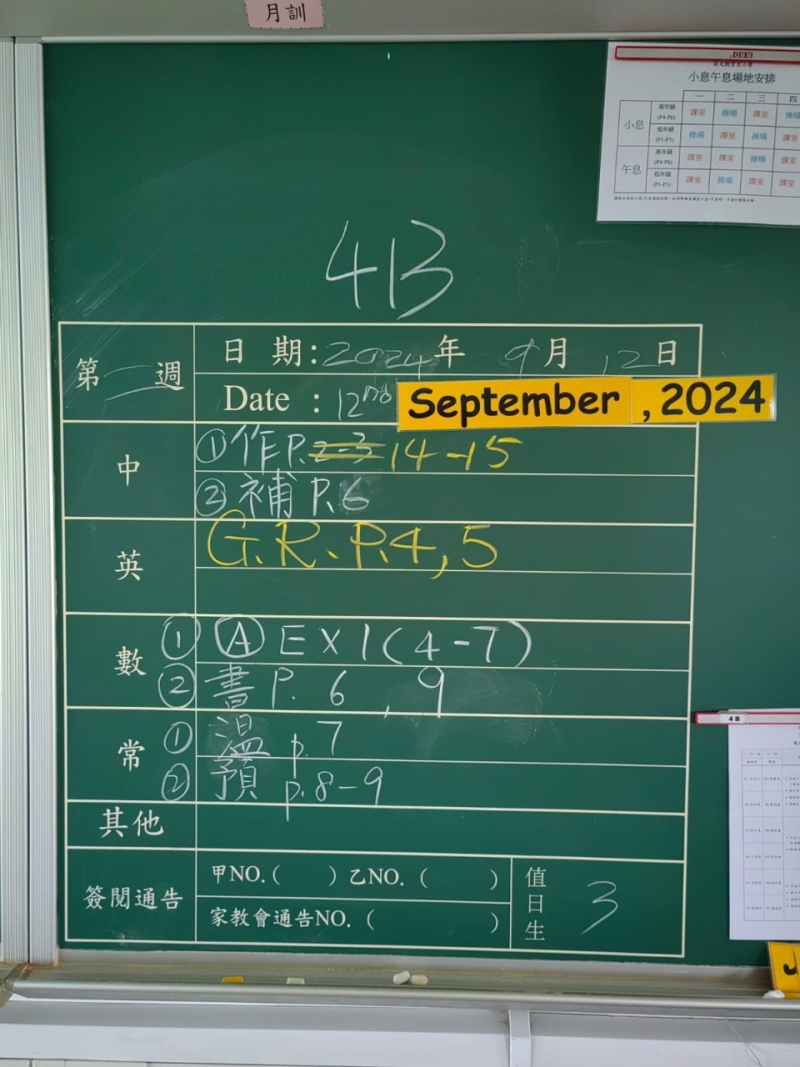 月訓
小息午息場地安排
一 二 三 四
小息 高年級 (P4-P6) 課室 操場 課室 操場
低年級 (P1-P3) 操場 課室 操場 課室
午息 高年級 (P4-P6) 課室 課室 操場 課室
低年級 (P1-P3) 課室 操場 課室 課室
4B
第二週 日期:2024年9月12日
Date : 12nd September ,2024
中 ①作P.2-3 14-15
②補P.6
英 G.R.P.4,5
數 ① Ⓐ EX1(4-7)
② 書P. 6 , 9
常 ① 溫 p.7
② 預 p.8-9
其他
簽閱通告 甲NO.( ) 乙NO. ( )
家教會通告NO. ( )
值日生 3
4B